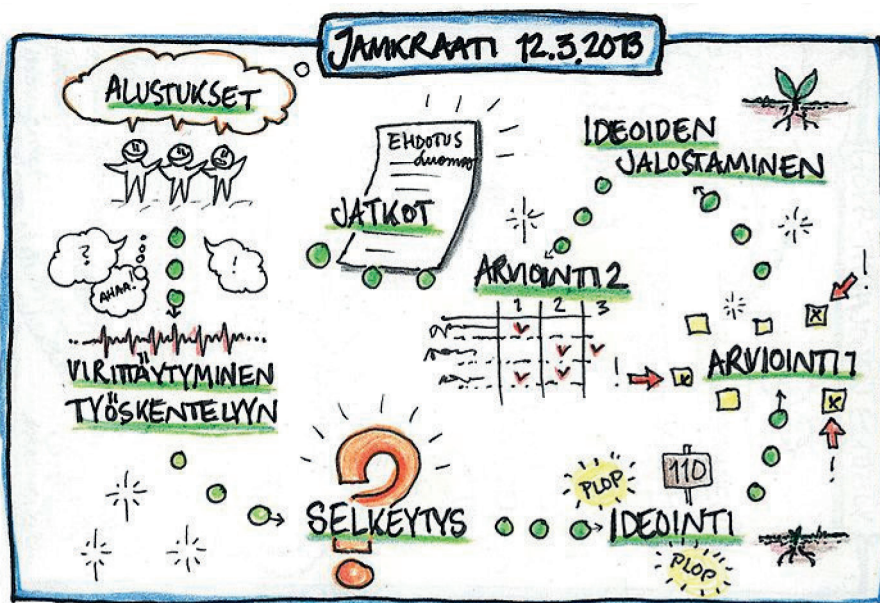 JAMKRAATI 12.3.2013
ALUSTUKSET
?
AHAA!
!
VIRITTÄYTYMINEN
TYÖSKENTELYYN
?
SELKEYTYS
PLOP
110
IDEOINTI
PLOP
!
ARVIOINTI 1
x
x
x
!
!
IDEOIDEN
JALOSTAMINEN
ARVIOINTI 2
1 2 3
EHDOTUS
JATKOT